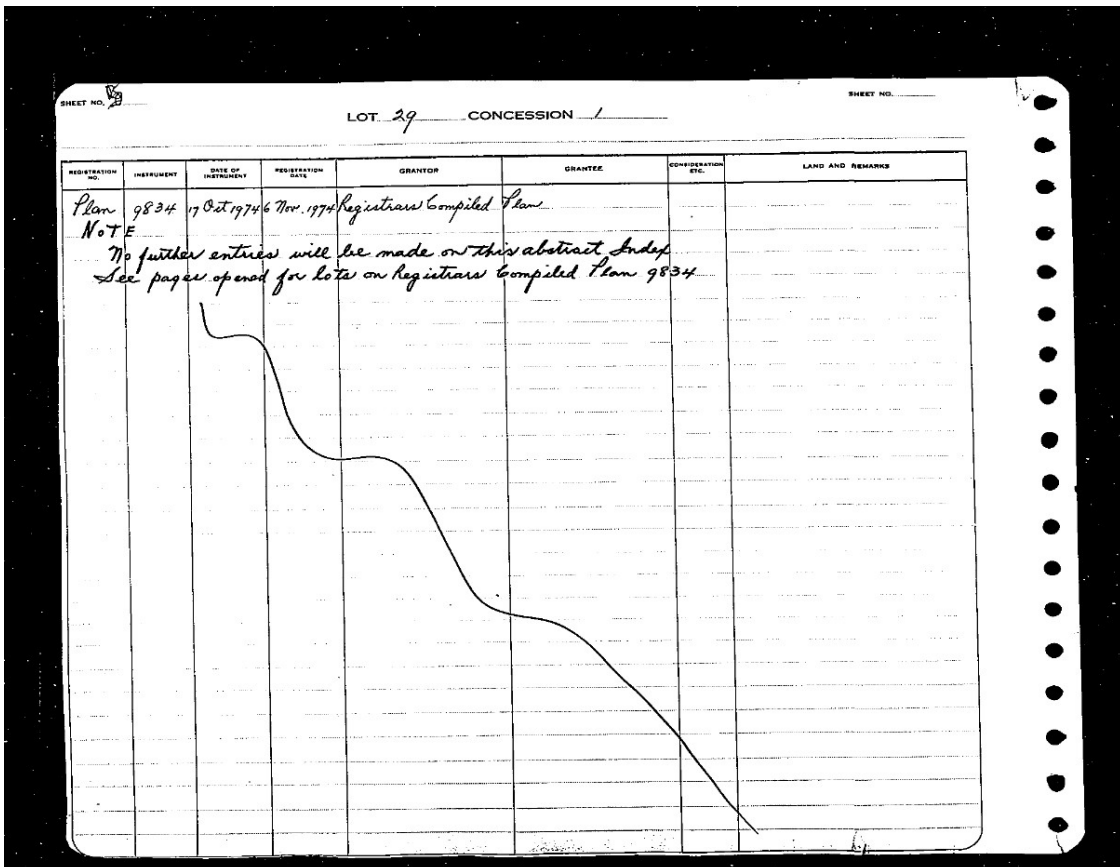 SHEET NO.
SHEET NO.
LOT 29 CONCESSION 1
REGISTRATION NO. INSTRUMENT DATE OF INSTRUMENT REGISTRATION DATE GRANTOR GRANTEE CONSIDERATION ETC. LAND AND REMARKS
Plan 9834 17 Oct 1974 6 Nov. 1974 Registrars Compiled Plan
NOTE
No further entries will be made on this abstract Index
See pages opened for lots on Registrars Compiled Plan 9834